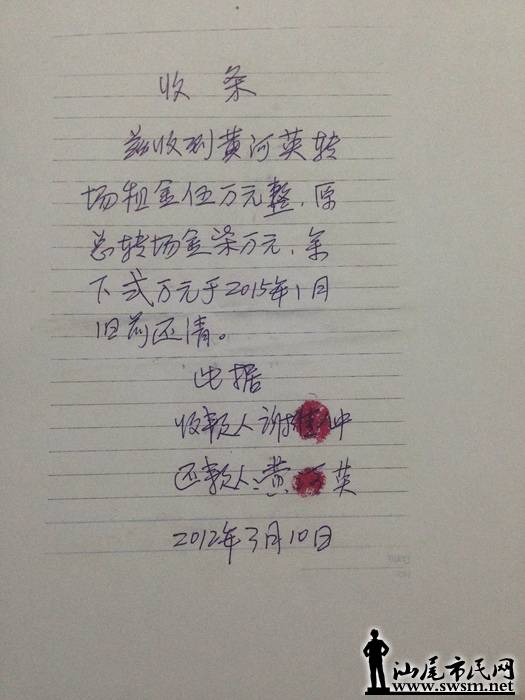 收条
兹收到黄河英转
场租金伍万元整，原
总转场金柒万元，余
下弍万元于2015年1月
1日前还清。
此据
收款人谢 仲
还款人：黄河英
2012年3月10日
汕尾市民网
www.swsm.net